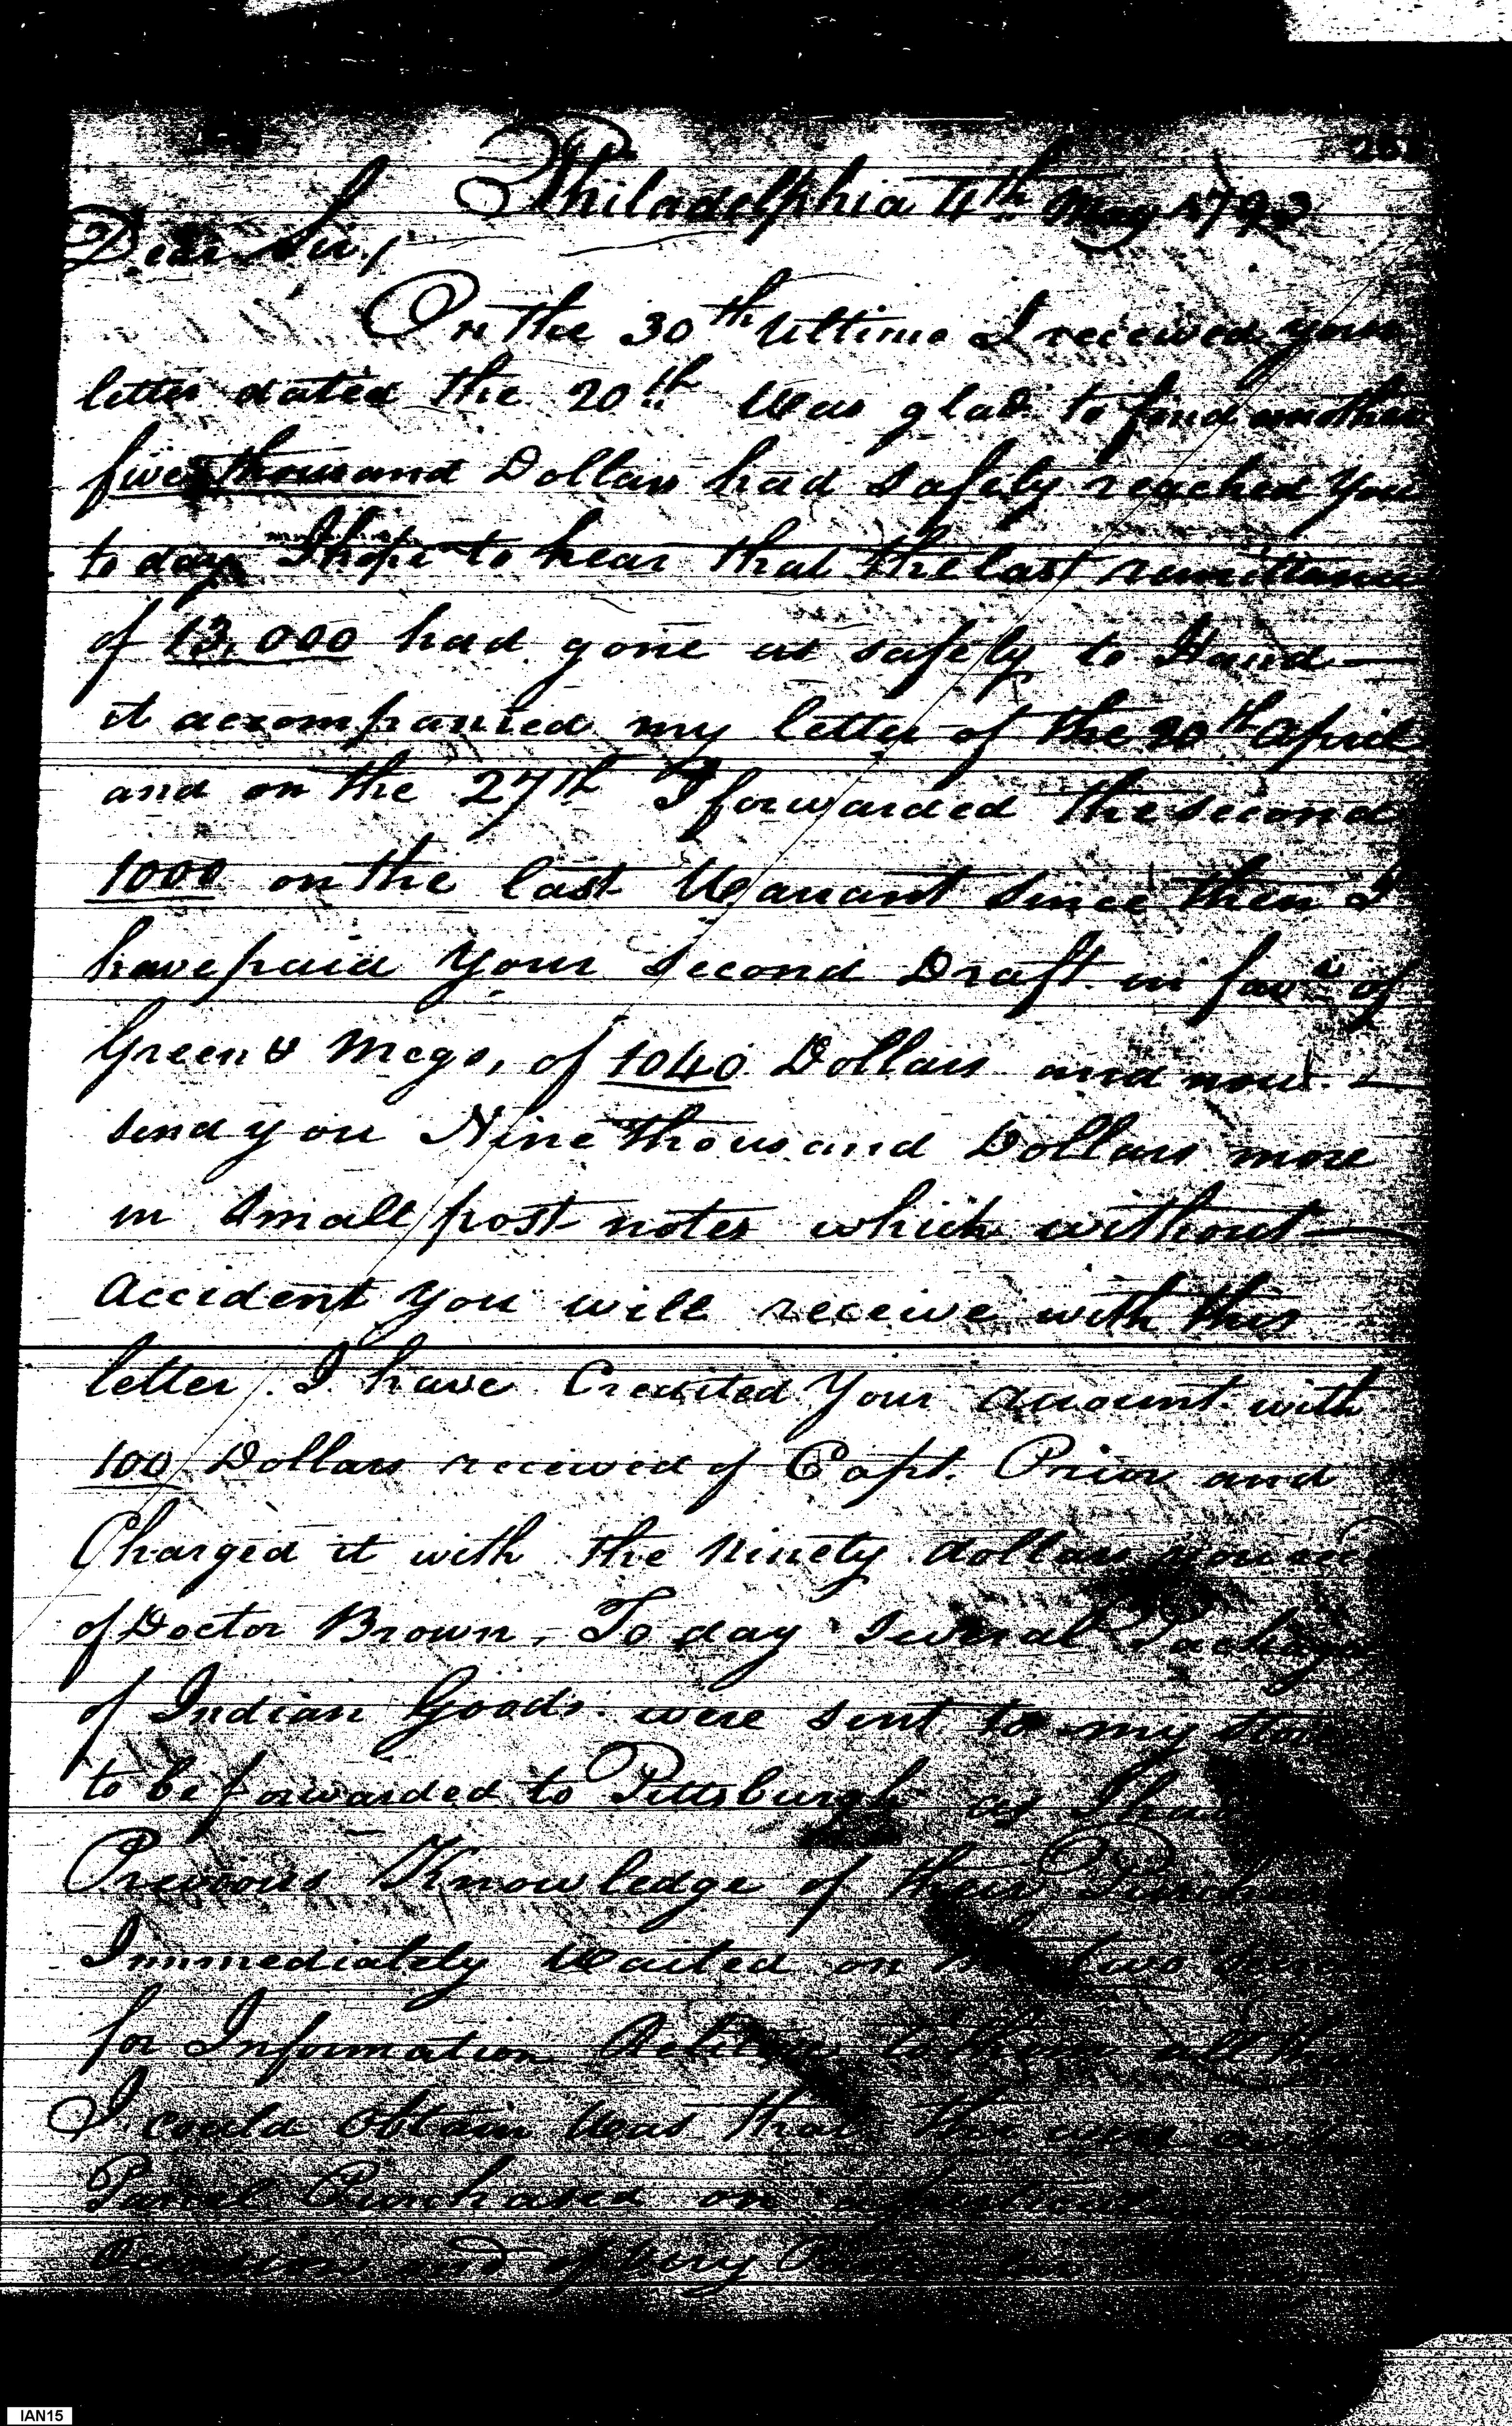 Philadelphia 4th May 1793
Dear Sir,
On the 30th Ultimo I received your
letter dated the 20th Was glad to find another
five thousand Dollars had safely reached You
to day I hope to hear that the last remittance
of 13,000 had gone as safely to Hand —
it accompanied my letter of the 20th April
and on the 27th I forwarded the second
1000 on the last Warrant since then I
have paid Your second Draft in favr of
Green & Megs, of 1040 Dollars and now —
send you Nine thousand Dollars more
in small post notes which without —
accident you will receive with this
letter. I have Credited Your account with
100 Dollars received of Capt. Prior and
Charged it with the Ninety dollars you
of Doctor Brown, To day Several Packages
of Indian Goods were sent to my
to be forwarded to Pittsburgh as I
Previous Knowledge of their
Immediately Waited on two
for Information Relative to them all
I could obtain Was that the were
Parcel Purchased on
and of very
IAN15